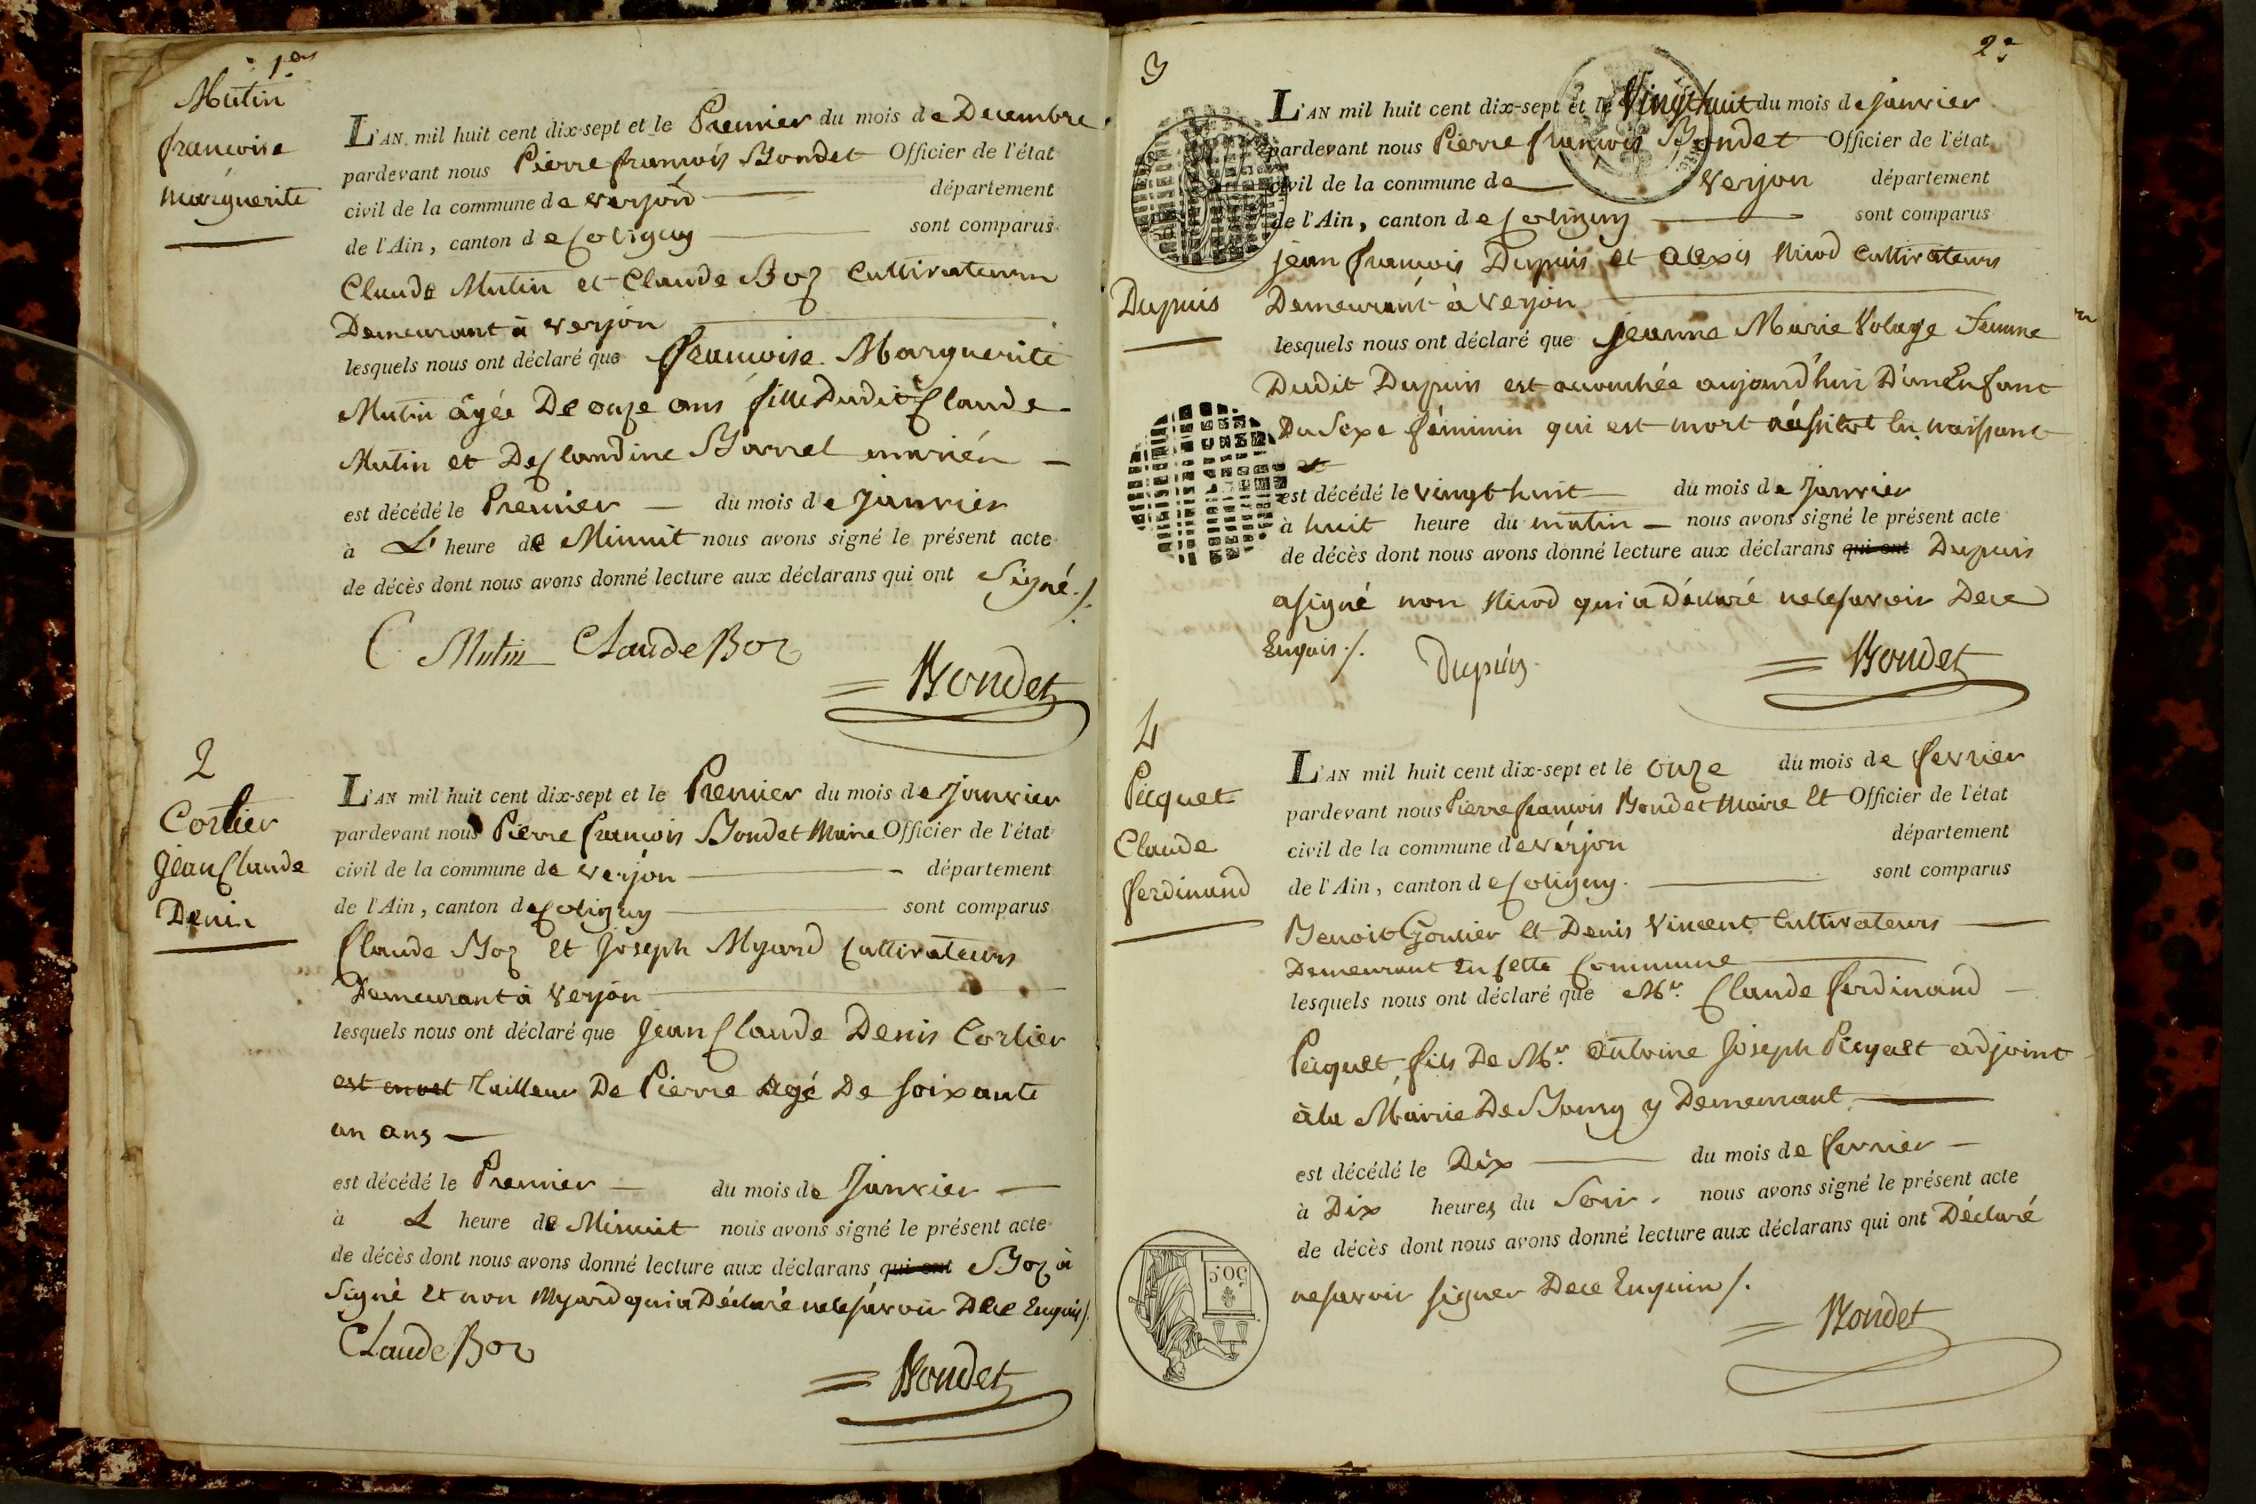 1er
Mutin
françoise
marguerite
L'AN mil huit cent dix-sept et le Premier du mois de Decembre
pardevant nous Pierre françois Bondet Officier de l'état
civil de la commune de verjon département
de l'Ain, canton de Coligny sont comparus
Claude Mutin et Claude Boz Cultivateurs
Demeurant à verjon
lesquels nous ont déclaré que françoise Marguerite
Mutin âgée De onze ans fille Dudit Claude
Mutin et De Claudine Borrel mariés
est décédé le Premier du mois de janvier
à L' heure de Minuit nous avons signé le présent acte
de décès dont nous avons donné lecture aux déclarans qui ont Signé ./.
C Mutin Claude Boz
Bondet
2
Cortier
Jean Claude
Denis
L'AN mil huit cent dix-sept et le Premier du mois de janvier
pardevant nous Pierre françois Bondet Maire Officier de l'état
civil de la commune de verjon département
de l'Ain, canton de Coligny sont comparus
Claude Boz et Joseph Myard Cultivateurs
Demeurant à Verjon
lesquels nous ont déclaré que Jean Claude Denis Cortier
Tailleur De Pierre agé De soixante
un ans
est décédé le Premier du mois de Janvier
à L heure de Minuit nous avons signé le présent acte
de décès dont nous avons donné lecture aux déclarans qui ont Boz à
Signé et non Myard qui a Déclaré ne le savoir De ce Enquis ./.
Claude Boz
Bondet
2e
3
Dupuis
L'AN mil huit cent dix-sept et le Vingt huit du mois de janvier
pardevant nous Pierre françois Bondet Officier de l'état
civil de la commune de Verjon département
de l'Ain, canton de Coligny sont comparus
jean françois Dupuis et alexis Nicod Cultivateurs
Demeurant à verjon
lesquels nous ont déclaré que jeanne Marie Volage femme
Dudit Dupuis est accouchée aujourd'hui D'un Enfant
Du Sexe féminin qui est mort aussitot En naissant
est décédé le vingt huit du mois de Janvier
à huit heure du matin nous avons signé le présent acte
de décès dont nous avons donné lecture aux déclarans qui ont Dupuis
a signé non Nicod qui a Déclaré ne le savoir De ce
Enquis ./.
Dupuis
Bondet
4
Picquet
Claude
ferdinand
L'AN mil huit cent dix-sept et le onze du mois de fevrier
pardevant nous Pierre françois Bondet Maire Et Officier de l'état
civil de la commune de verjon département
de l'Ain, canton de Coligny. sont comparus
Benoit Goutier Et Denis Vincent Cultivateurs
Demeurant En Cette Commune
lesquels nous ont déclaré que Mr. Claude ferdinand
Picquet, fils De Mr. antoine Joseph Picquet adjoint
à la Mairie De Bourg y Demeurant
est décédé le Dix du mois de fevrier
à Dix heures du Soir. nous avons signé le présent acte
de décès dont nous avons donné lecture aux déclarans qui ont Déclaré
ne savoir signer De ce Enquis ./.
Bondet
50c